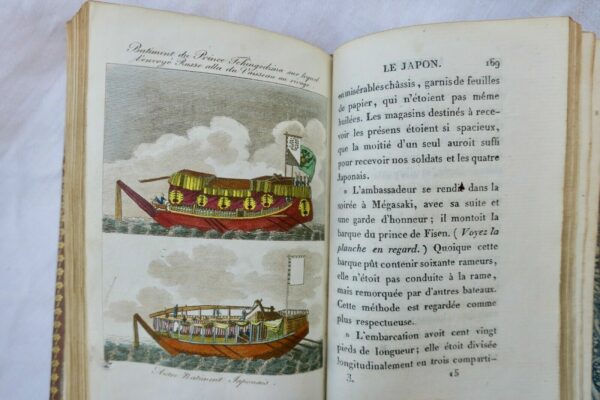 Batiment du Prince Tchingodzin sur lequel
l'envoyé Russe alla du Vaisseau au rivage
Autre Batiment Japonais.
LE JAPON. 169
et misérables châssis, garnis de feuilles
de papier, qui n'étoient pas même
huilées. Les magasins destinés à rece-
voir les présens étoient si spacieux,
que la moitié d'un seul auroit suffi
pour recevoir nos soldats et les quatre
Japonais.
» L'ambassadeur se rendit dans la
soirée à Mégasaki, avec sa suite et
une garde d'honneur ; il montoit la
barque du prince de Fisen. ( Voyez la
planche en regard. ) Quoique cette
barque pût contenir soixante rameurs,
elle n'étoit pas conduite à la rame,
mais remorquée par d'autres bateaux.
Cette méthode est regardée comme
plus respectueuse.
» L'embarcation avoit cent vingt
pieds de longueur ; elle étoit divisée
longitudinalement en trois comparti-
3. 15